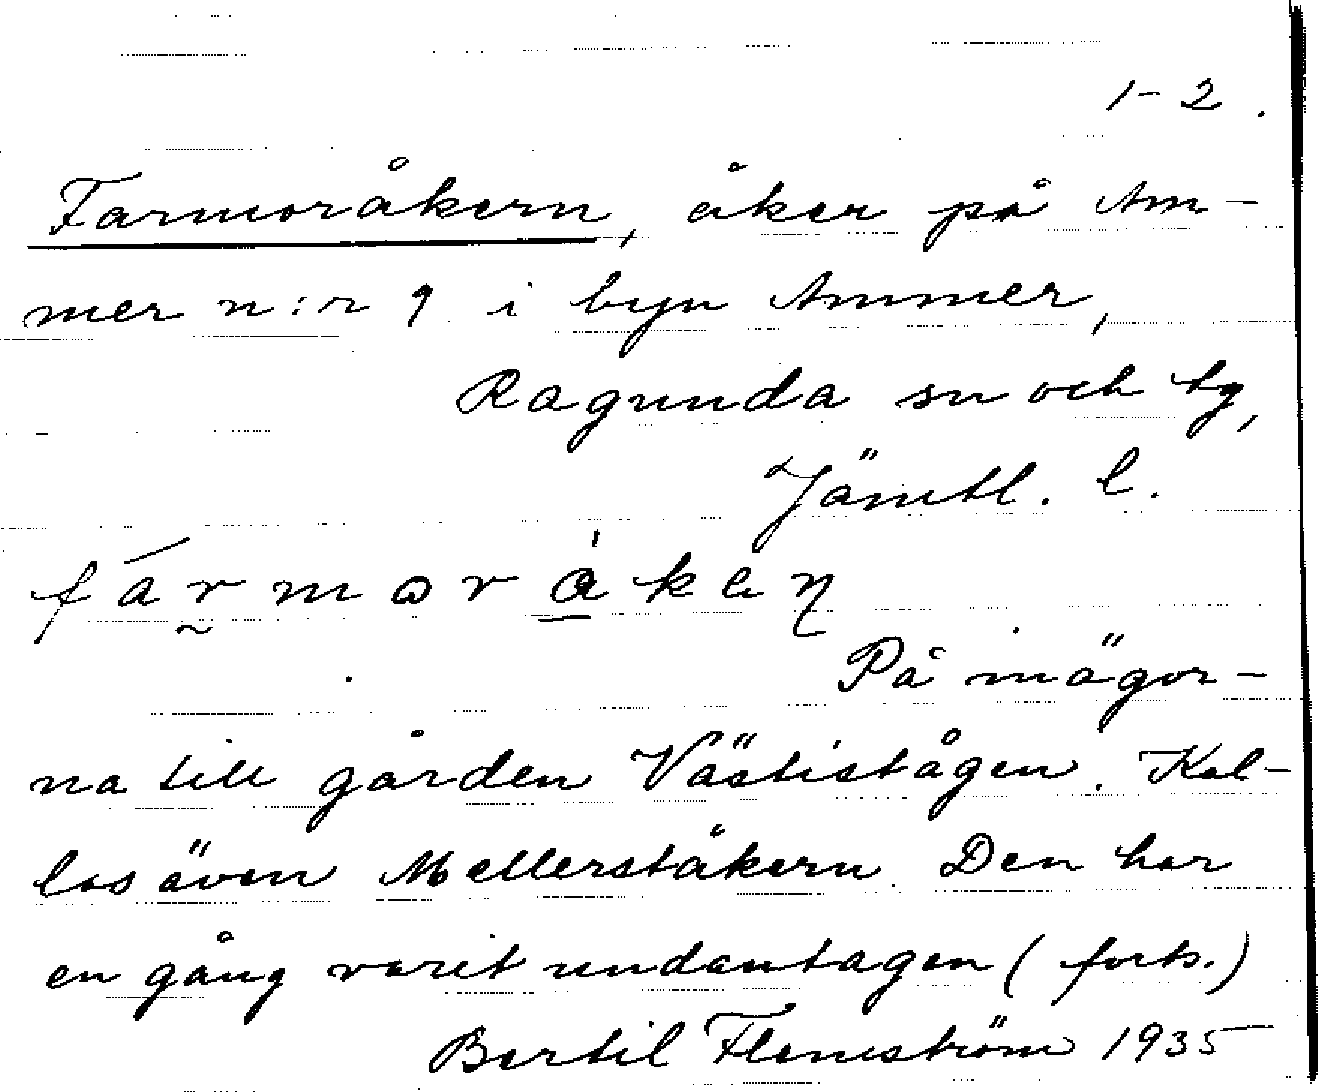 1-2.
Farmoråkern, åker på Am-
mer n:r 9 i byn Ammer,
Ragunda sn och tg,
Jämtl. l.
På inägor-
na till gården Västistågen. Kal-
las även Mellerståkern. Den har
en gång varit undantagen (forts.)
Bertil Flemström 1935